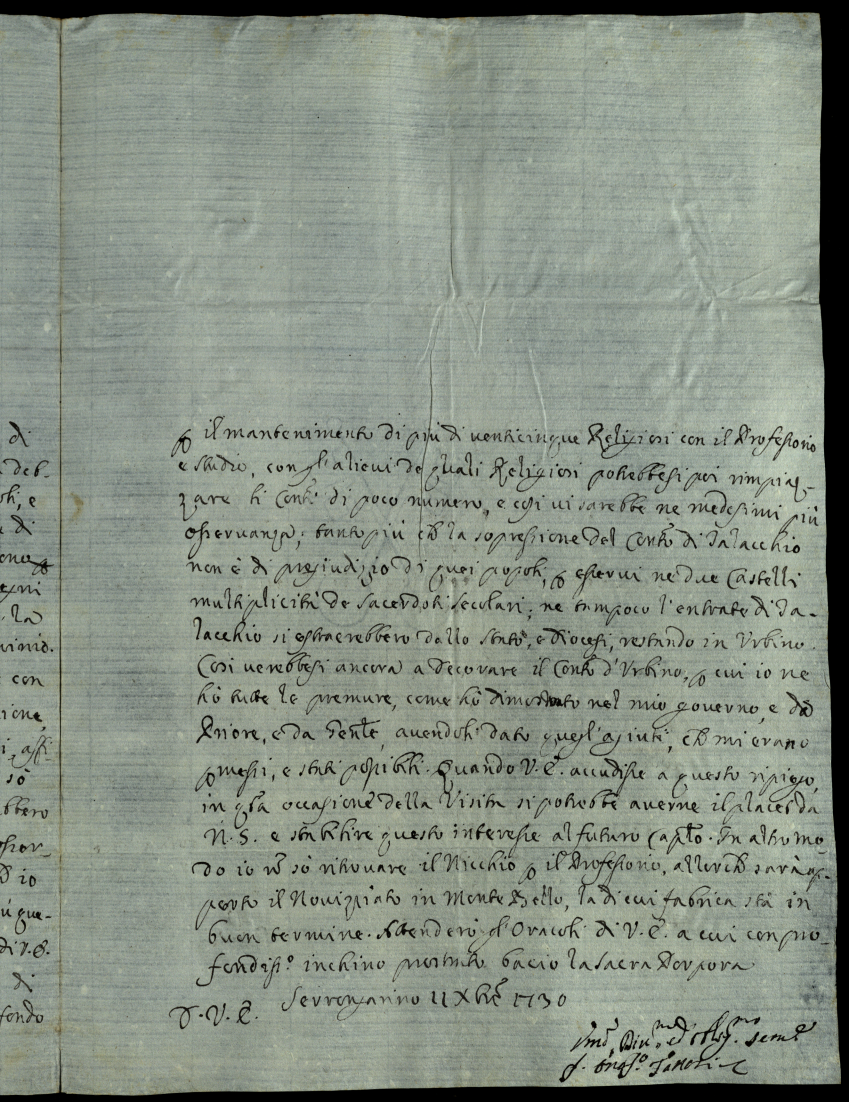 di
deb-
e
di
la
con
ione
so
bbero
io
di V.E.
di
fondo
il mantenimento di più di venticinque Religiosi con il Professorio
e studio, con gl'alievi de quali Religiosi potrebbesi poi rimpiaz-
zare li Conti di poco numero, e così vi sarebbe ne medesimi più
osservanza; tanto più ch la sopressione del Conto di Talacchio
non è di pregiudizio di quei popoli, esservi ne due Castelli
multiplicità de Sacerdoti secolari; ne tampoco l'entrate di Ta-
lacchio si estraerebbero dallo stato, e diocesi, restando in Urbino.
Così verebbesi ancora a decorare il Conto d'Urbino, cui io ne
hò tutte le premure, come hò dimostrato nel mio governo, e da
Priore, e da avendoli dato quegl'agiuti, ch mi erano
messi, e stati possibili. Quando V.E. accudisse a questo ripiego,
in occasione della Visita si potrebbe averne il placet da
N.S. e stabilire questo interesse al futuro Caplo. In altro mo-
do io nō sò ritrovare il Nicchio il Professorio, allorch sarà ap-
perto il Noviziato in Monte Bello, la di cui fabrica stà in
buon termine. Attenderò gl'Oracoli di V.E. a cui con pro-
fondiss.o inchino prostrato bacio la Sacra Porpora
D. V. E. Serrongarino 11 Xbre 1730